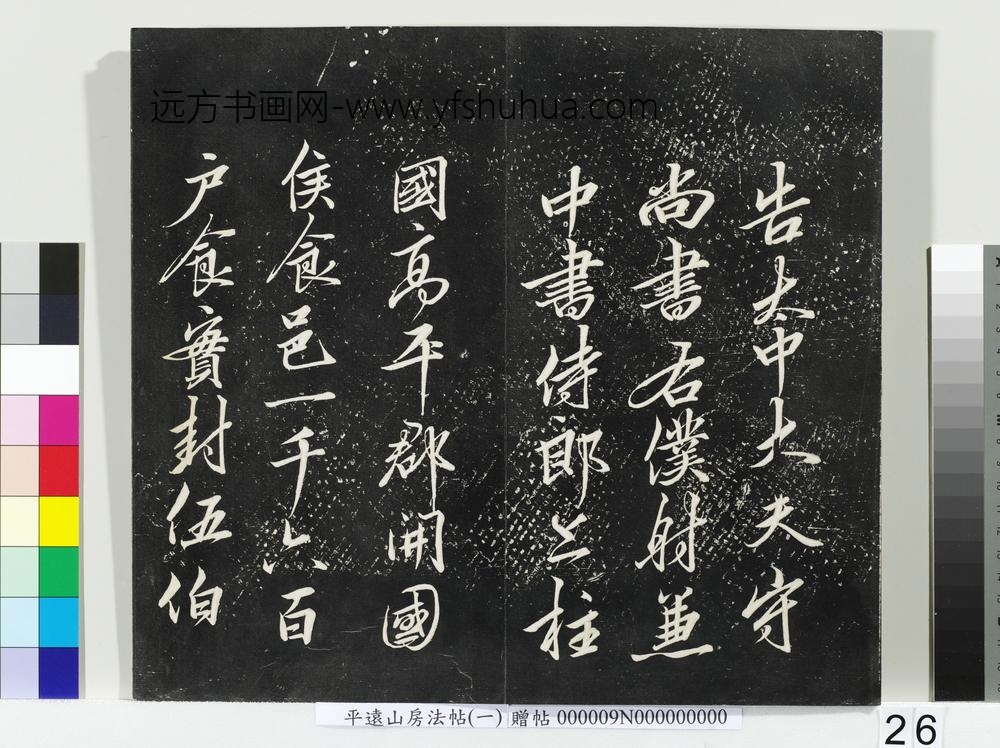 远方书画网-www.yfshuhua.com
告太中大夫守
尚書右僕射兼
中書侍郎上柱
國高平郡開國
侯食邑一千六百
户食實封伍伯
平遠山房法帖(一) 贈帖 000009N000000000
26